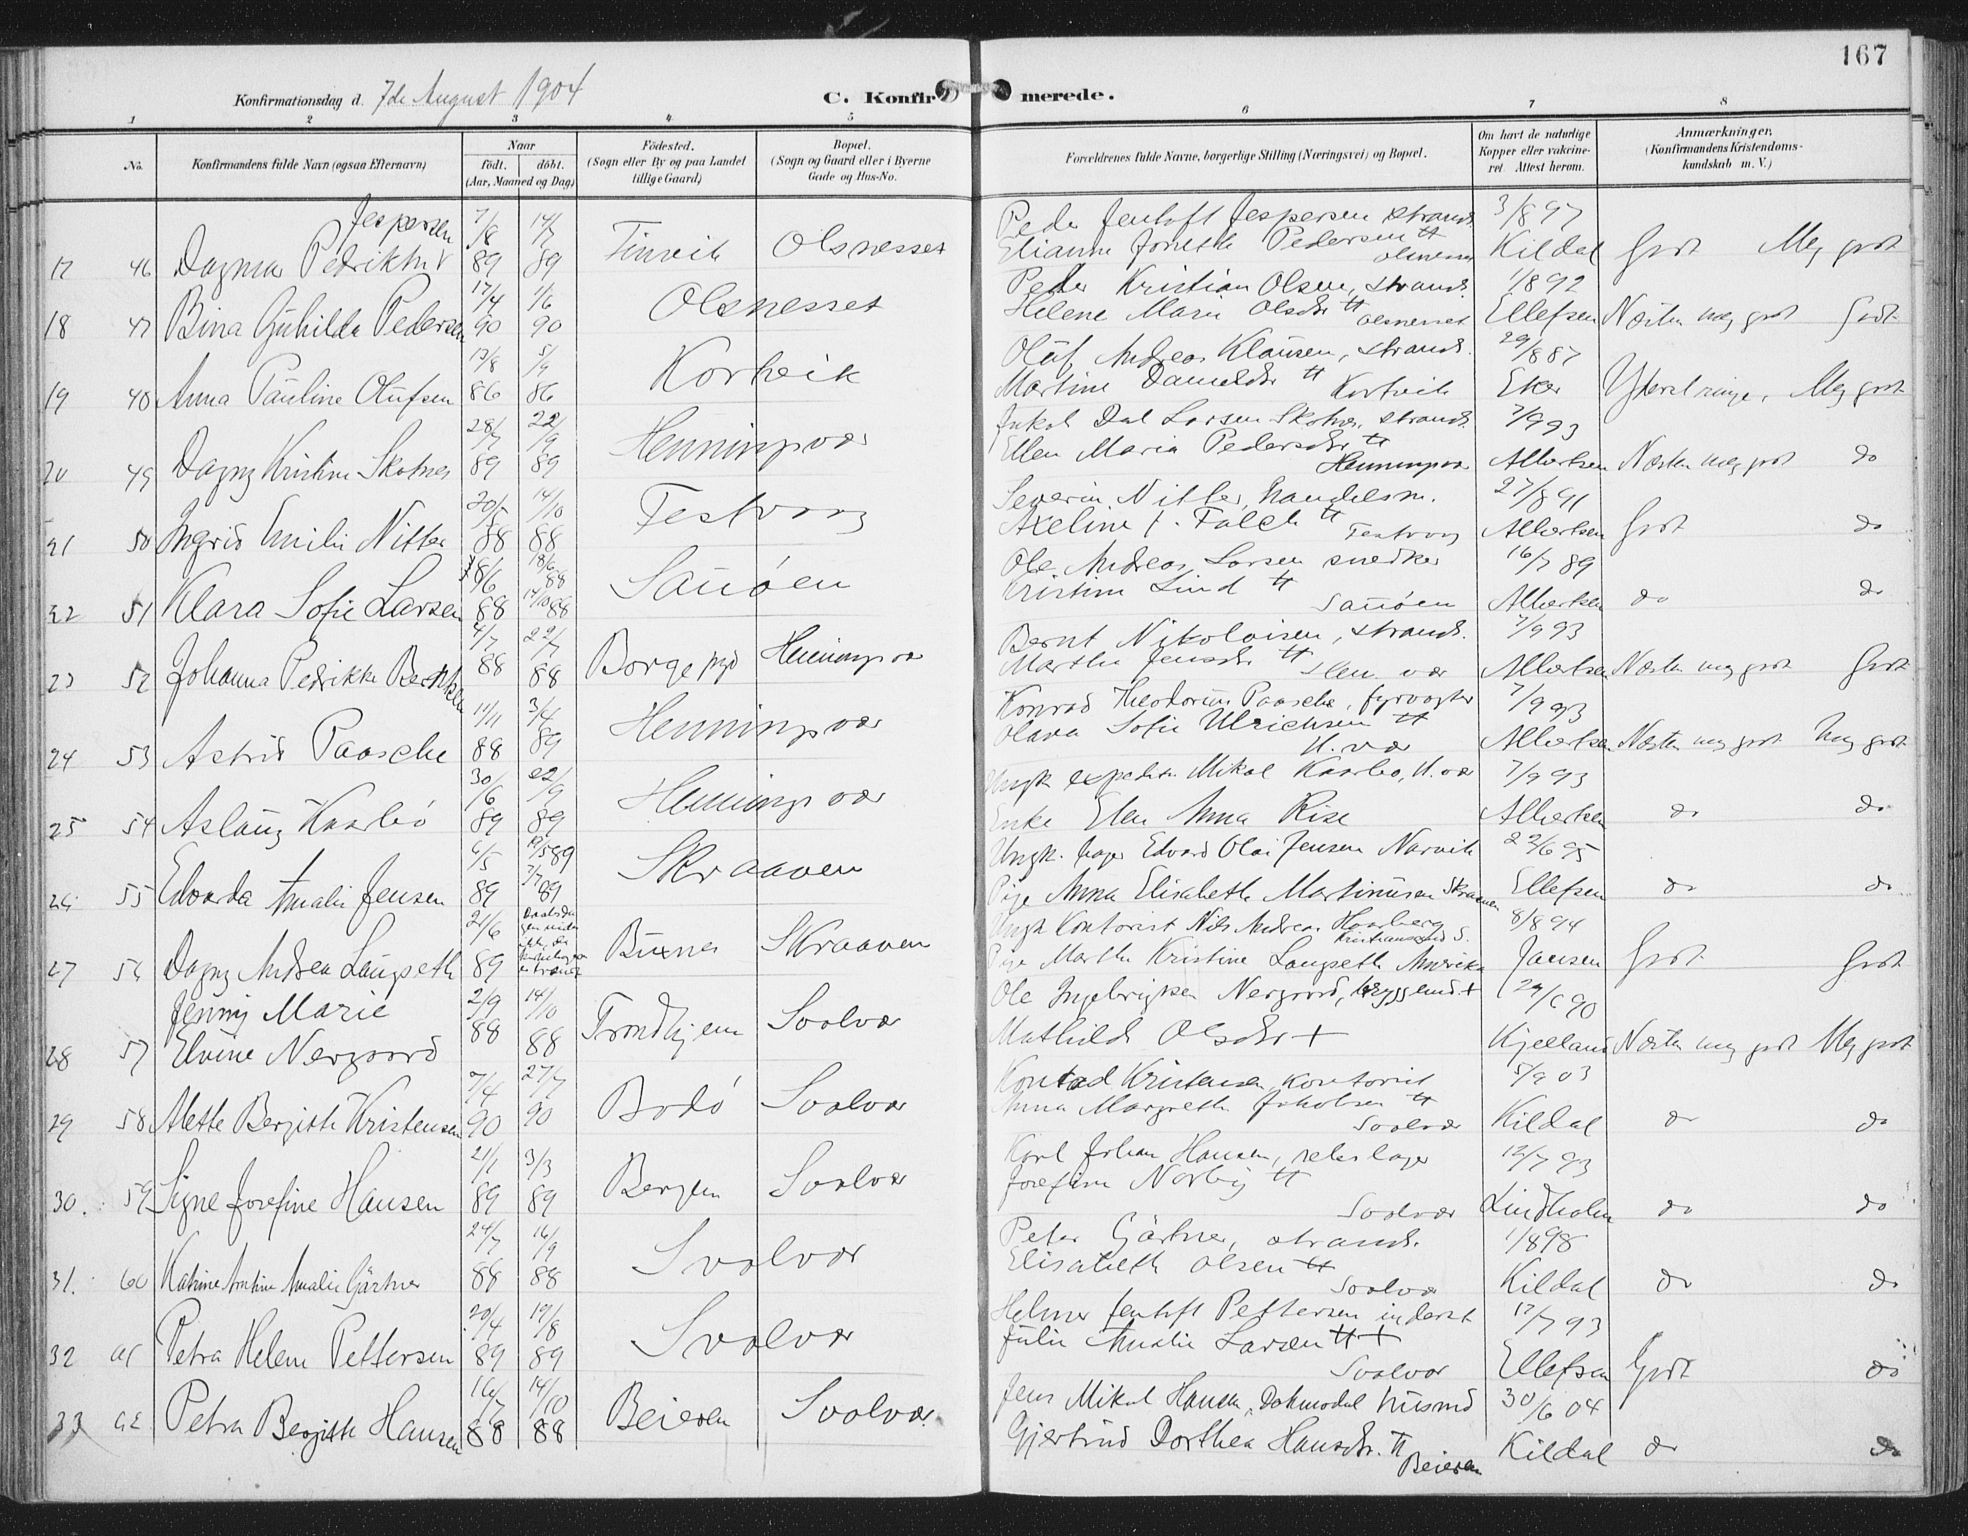 167
Konfirmationsdag d. 7de August 1904
C. Konfirmerede.
1 2 3 4 5 6 7 8
No. Konfirmandens fulde Navn (ogsaa Efternavn) Naar født. døbt. (Aar, Maaned og Dag) Fødested. (Sogn eller By og paa Landet tillige Gaard) Bopæl. (Sogn og Gaard eller i Byerne Gade og Hus-No. Forældrenes fulde Navne, borgerlige Stilling (Næringsvei) og Bopæl. Om havt de naturlige Kopper eller vakcineret. Attest herom. Anmærkninger. (Konfirmandens Kristendomskundskab m. V.)
Jespersen 7/8 14/7 Peder Jentoft Jespersen strands. 3/8 97
17 46 Dagmar 89 89 Olsnesset Elianne Pedersen tt Olsnesset Kildal Godt Meg godt
17/4 1/6 Peder Kristian Olsen, strands. 1/8 92
18 47 Bina Gjuhilda Pedersen 90 90 Olsnesset Helene Marie Olsdtr tt Olsnesset Ellefsen Næsten meg godt Godt
13/8 5/9 Oluf Andreas Klausen, strands. 29/8 87
19 40 Anna Pauline Olufsen 86 86 Korkvik Martine tt Kortvik Eker Yderst ringe, Meg godt
28/7 22/9 Larsen Skotnes strands. 7/9 93
20 49 Dagny Kristine Skotnes 89 89 Henningsvær Ellen Maria Pedersdtr tt Henningsvær Albertsen Næsten meg godt do
20/5 14/10 Severin Nitter, handelsm. 27/8 91
21 50 Ingrid Emilie Nitter 88 88 Festvaag Axeline J. Falch tt Festvaag Albertsen Godt do
8/6 18/6 88 Ole Andreas Larsen snedker 16/7 89
22 51 Klara Sofie Larsen 88 14/10 88 Sauøen Kristine Lind tt Sauøen Albertsen do do
4/7 22/7 Bernt Nikolaisen, strands. 7/9 93
23 52 Johanna Pedrikke 88 88 Borge pgd Henningsvær Marthe Jensdtr tt Albertsen Næsten meg godt Godt
14/11 3/4 Konrad Theodorius Paasche, fyrvogter 7/9 93
24 53 Astrid Paasche 88 89 Henningsvær Olava Sofie Ulrichsen tt H. vær Albertsen Næsten meg godt Meg godt
30/6 22/9 Ungk. expeditr Mikal Kaarbø, H. vær 7/9 93
25 54 Aslaug Kaarbø 89 89 Henningsvær Enke Elen Anna Rise Albertsen do do
6/5 19/5 89 Ungk. Edvard Olai Jensen Narvik 22/6 95
26 55 Edvarda Amalie Jensen 89 7/7 89 Skraaven Pige Anna Elisabeth Martinusen Skraaven Ellefsen do do
21/6 Ungk Kontorist Nils Andreas Haaberg Kristianssund S. 8/8 94
27 56 Dagny Andrea Langseth 89 Buxnes Skraaven Pige Marthe Kristine Langseth Amerika Jansen Godt Godt
Jenny Marie 2/9 14/10 Ole Ingebrigtsen Nergaard, bryggemd + 29/6 90
28 57 Elvine Nergaard 88 88 Trondhjem Svolvær Mathilde Olsdtr + Kjelland Næsten meg godt Meg godt
7/4 27/7 Konrad Kristensen, Kontorist 5/9 03
29 58 Mette Bergitte Kristensen 90 90 Bodø Svolvær Anna Margrethe Jakobsen tt Svolvær Kildal do do
21/1 3/3 Karl Johan Hansen, rebslager 12/7 93
30. 59 Signe Josefine Hansen 89 89 Bergen Svolvær Josefine Norby tt Svolvær Lindholm do do
24/7 16/9 Peter Gärtner, strands. 1/8 98
31. 60 Katrine Antine Amalie Gärtner 88 88 Svolvær Elisabeth Olsen tt Svolvær Kildal do do
20/4 19/8 Helmer Jentoft Pettersen inderst 17/7 93
32 61 Petra Helene Pettersen 89 89 Svolvær Julie Amalie Larsen tt + Svolvær Ellefsen Godt do
16/7 14/10 Jens Mikal Hansen, Dokmodal husmd 30/6 04
33 62 Petra Bergitte Hansen 88 88 Beieren Svolvær. Gjertrud Dorthea Hansdtr. tt Beieren Kildal do do